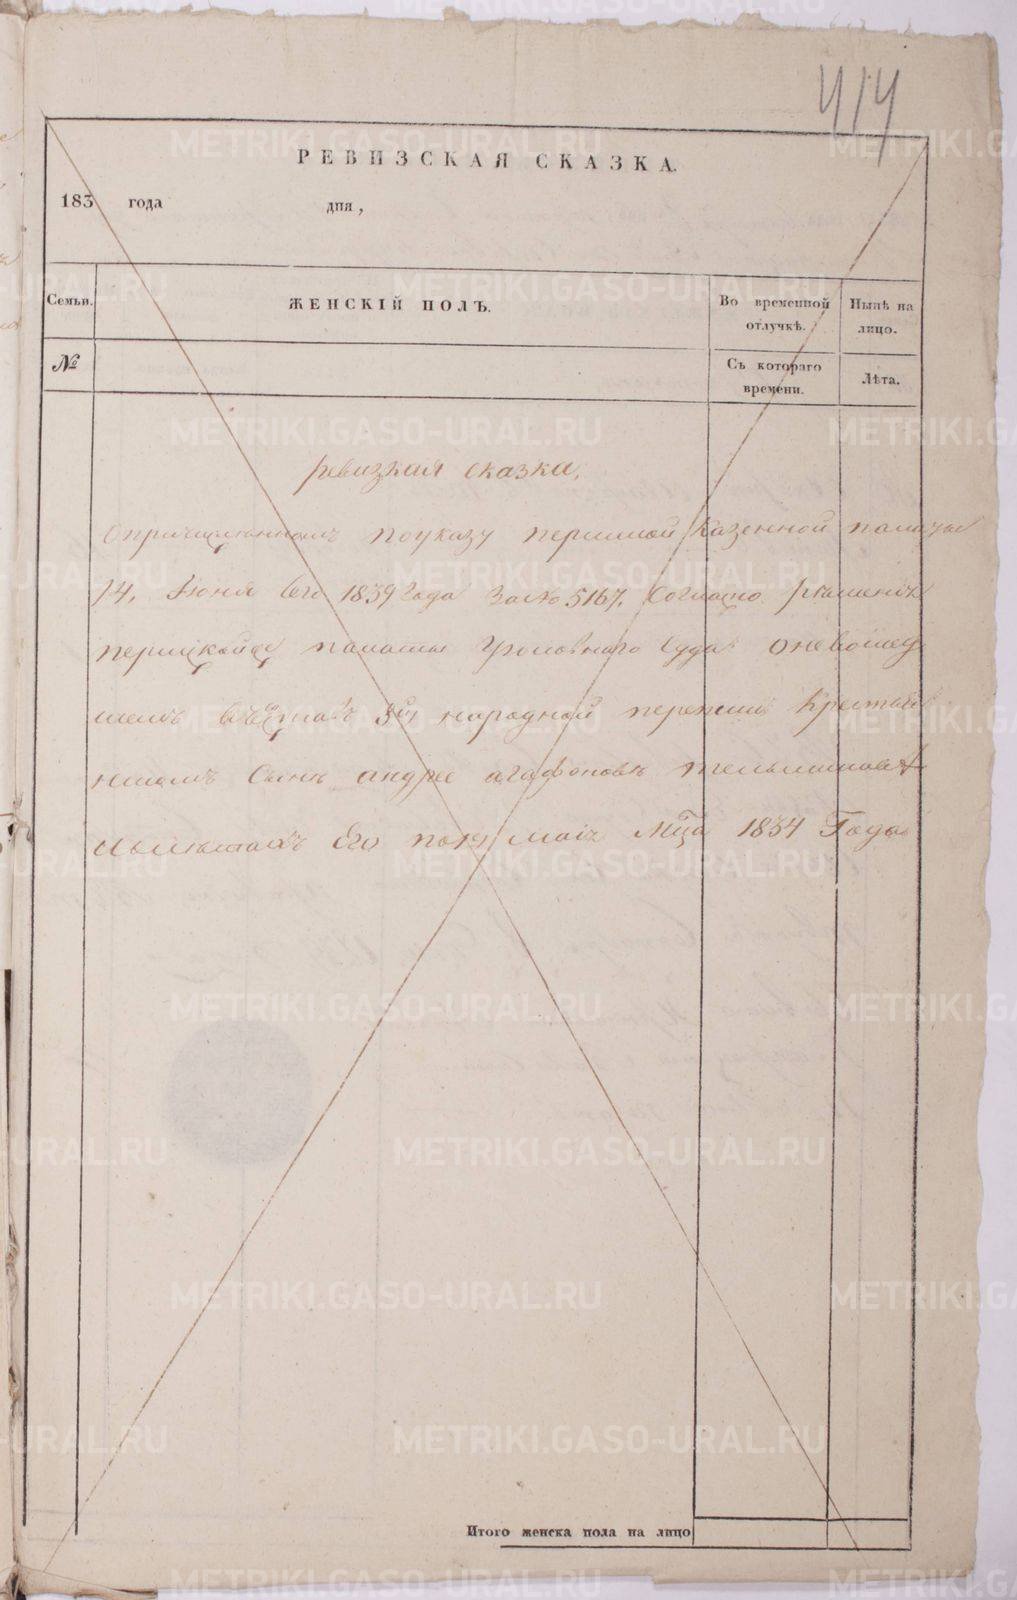 414
РЕВИЗСКАЯ СКАЗКА.
183 года дня,
Семьи. ЖЕНСКІЙ ПОЛЪ. Во временной отлучкѣ. Нынѣ на лицо.
№ Съ котораго времени. Лѣта.
ревизкая сказка,
Опричисленномъ поуказу пермской Казенной палаты
14, Июня Сего 1839 Года За № 5167. Согласно решенія
пермской палаты Уголовного Суда оневошед
шемъ въ 8ю народной переписи Крестья
нскомъ Сыне андрее агафонове
Его по 1834 Года
Итого женска пола на лицо
METRIKI.GASO-URAL.RU